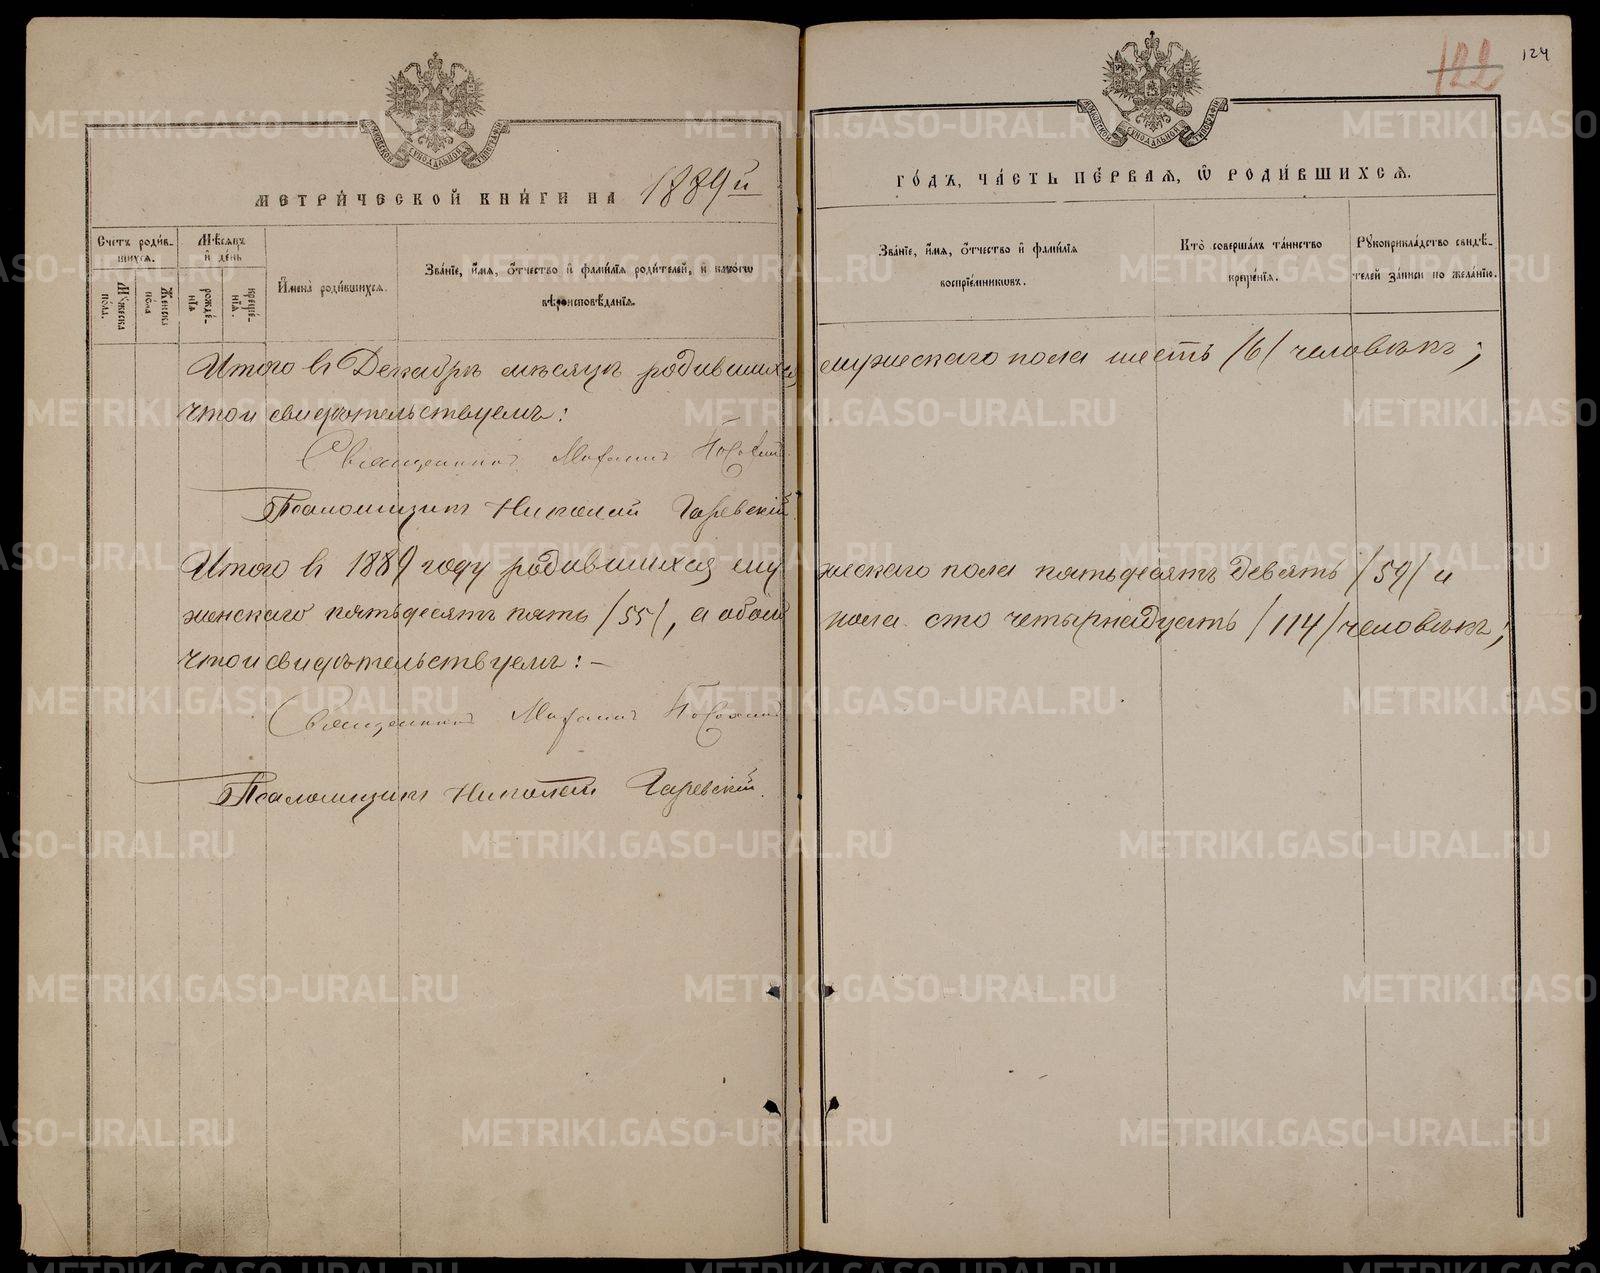 122
124
МОСКОВСКОЙ СѴНОДАЛЬНОЙ ТИПОГРАФІИ
МОСКОВСКОЙ СѴНОДАЛЬНОЙ ТИПОГРАФІИ
МЕТРИ́ЧЕСКОЙ КНИ́ГИ НА 1889й
ГО́ДЪ, ЧА́СТЬ ПЕ́РВАѦ, Ѿ РОДИ́ВШИХСѦ.
Сче́тъ роди́в-
шихсѧ.
Мꙋ́жеска по́ла.
Же́нска по́ла
Мѣ́сѧцъ и҆ де́нь
рожде́-
нїѧ
креще́-
нїѧ.
И҆мена̀ роди́вшихсѧ.
Зва́нїе, и҆́мѧ, ѻ҆́тчество и҆ фами́лїѧ роди́телей, и҆ како́гѡ
вѣроисповѣ́данїѧ.
Зва́нїе, и҆́мѧ, ѻ҆́тчество и҆ фами́лїѧ
воспрїе́мникѡвъ.
Кто̀ соверша́лъ та́инство
креще́нїѧ.
Рꙋкоприкла́дство свидѣ́-
телей за́писи по жела́нїю.
Итого въ Декабрѣ мѣсяцѣ родившихся мужескаго пола шесть /6/ человѣкъ;
что и свидѣтельствуемъ:
Священникъ Михаилъ
Псаломщикъ Николай Гаревскій.
Итого въ 1889 году родившихся мужескаго пола пятьдесятъ девять /59/ и
женскаго пятьдесятъ пять /55/, а обоего пола сто четырнадцать /114/ человѣкъ;
что и свидѣтельствуемъ: –
Священникъ Михаилъ
Псаломщикъ Николай Гаревскій.
METRIKI.GASO-URAL.RU